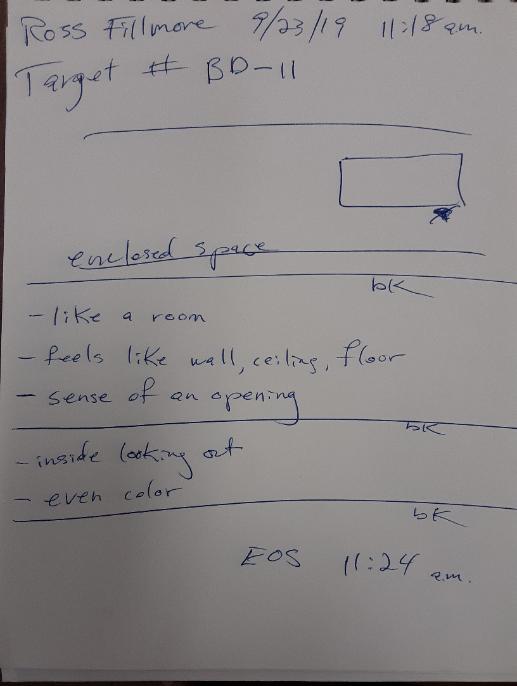 Ross Fillmore 9/23/19 11:18 a.m.
Target # BD-11
enclosed space
bk
- like a room
- feels like wall, ceiling, floor
- sense of an opening
bk
- inside looking out
- even color
bk
EOS 11:24 a.m.